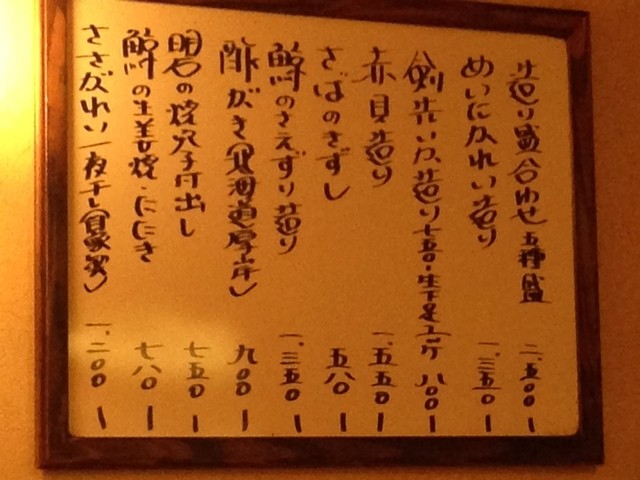 造り盛合わせ五種盛 二、五〇〇ー
めいたかれい造り 一、三五〇ー
剣先いか造り七五〇ー生下足上ゲ 八〇〇ー
赤貝造り 一、五五〇ー
さばのきずし 五八〇ー
鯨のさえずり造り 一、三五〇ー
酢がき(北海道厚岸) 九〇〇ー
明石の焼穴子付出し 七五〇ー
鯨の生姜焼・ににき 七八〇ー
ささがれい一夜干し 一、二〇〇ー